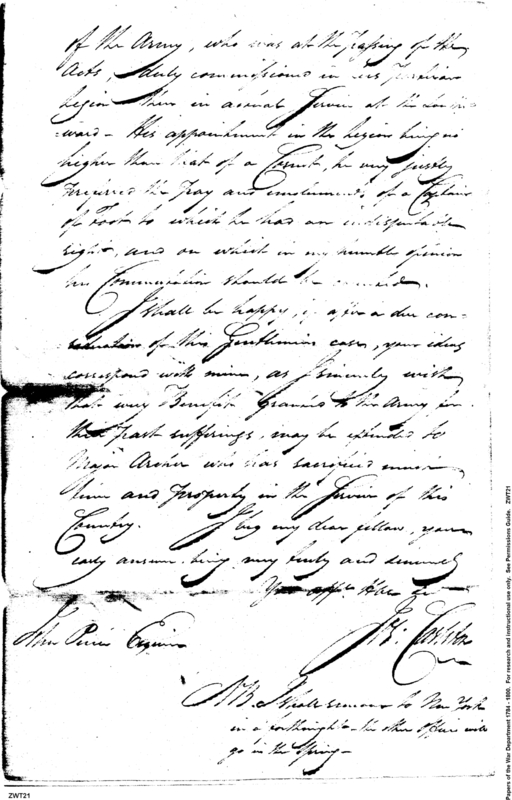 of the Army, who was at the Passing of the
Acts, duly commissioned in Partizan
Legion then in actual Service at the
ward – His appointment in the Legion being no
higher than that of a Cornet, he very justly
preferred the Pay and emoluments of a Captain
of Foot to which he had an indisputable
right, and on which in my humble opinion
his Commutation should be
I shall be happy, if after a due con-
sideration of this Gentlemans case, your ideas
correspond with mine, as I sincerely wish
that every Benefit Granted to the Army for
their past sufferings, may be extended to
Major Archer who has sacrificed much
time and Property in the Service of this
Country. I beg my dear fellow, your
early answer, being very truly and sincerely
John Pierce Esquire
NB. I shall remove to New York
in a forthnight – the other Officers will
go in the Spring –
ZWT21
Papers of the War Department 1784 - 1800. For research and instructional use only. See Permissions Guide. ZWT21